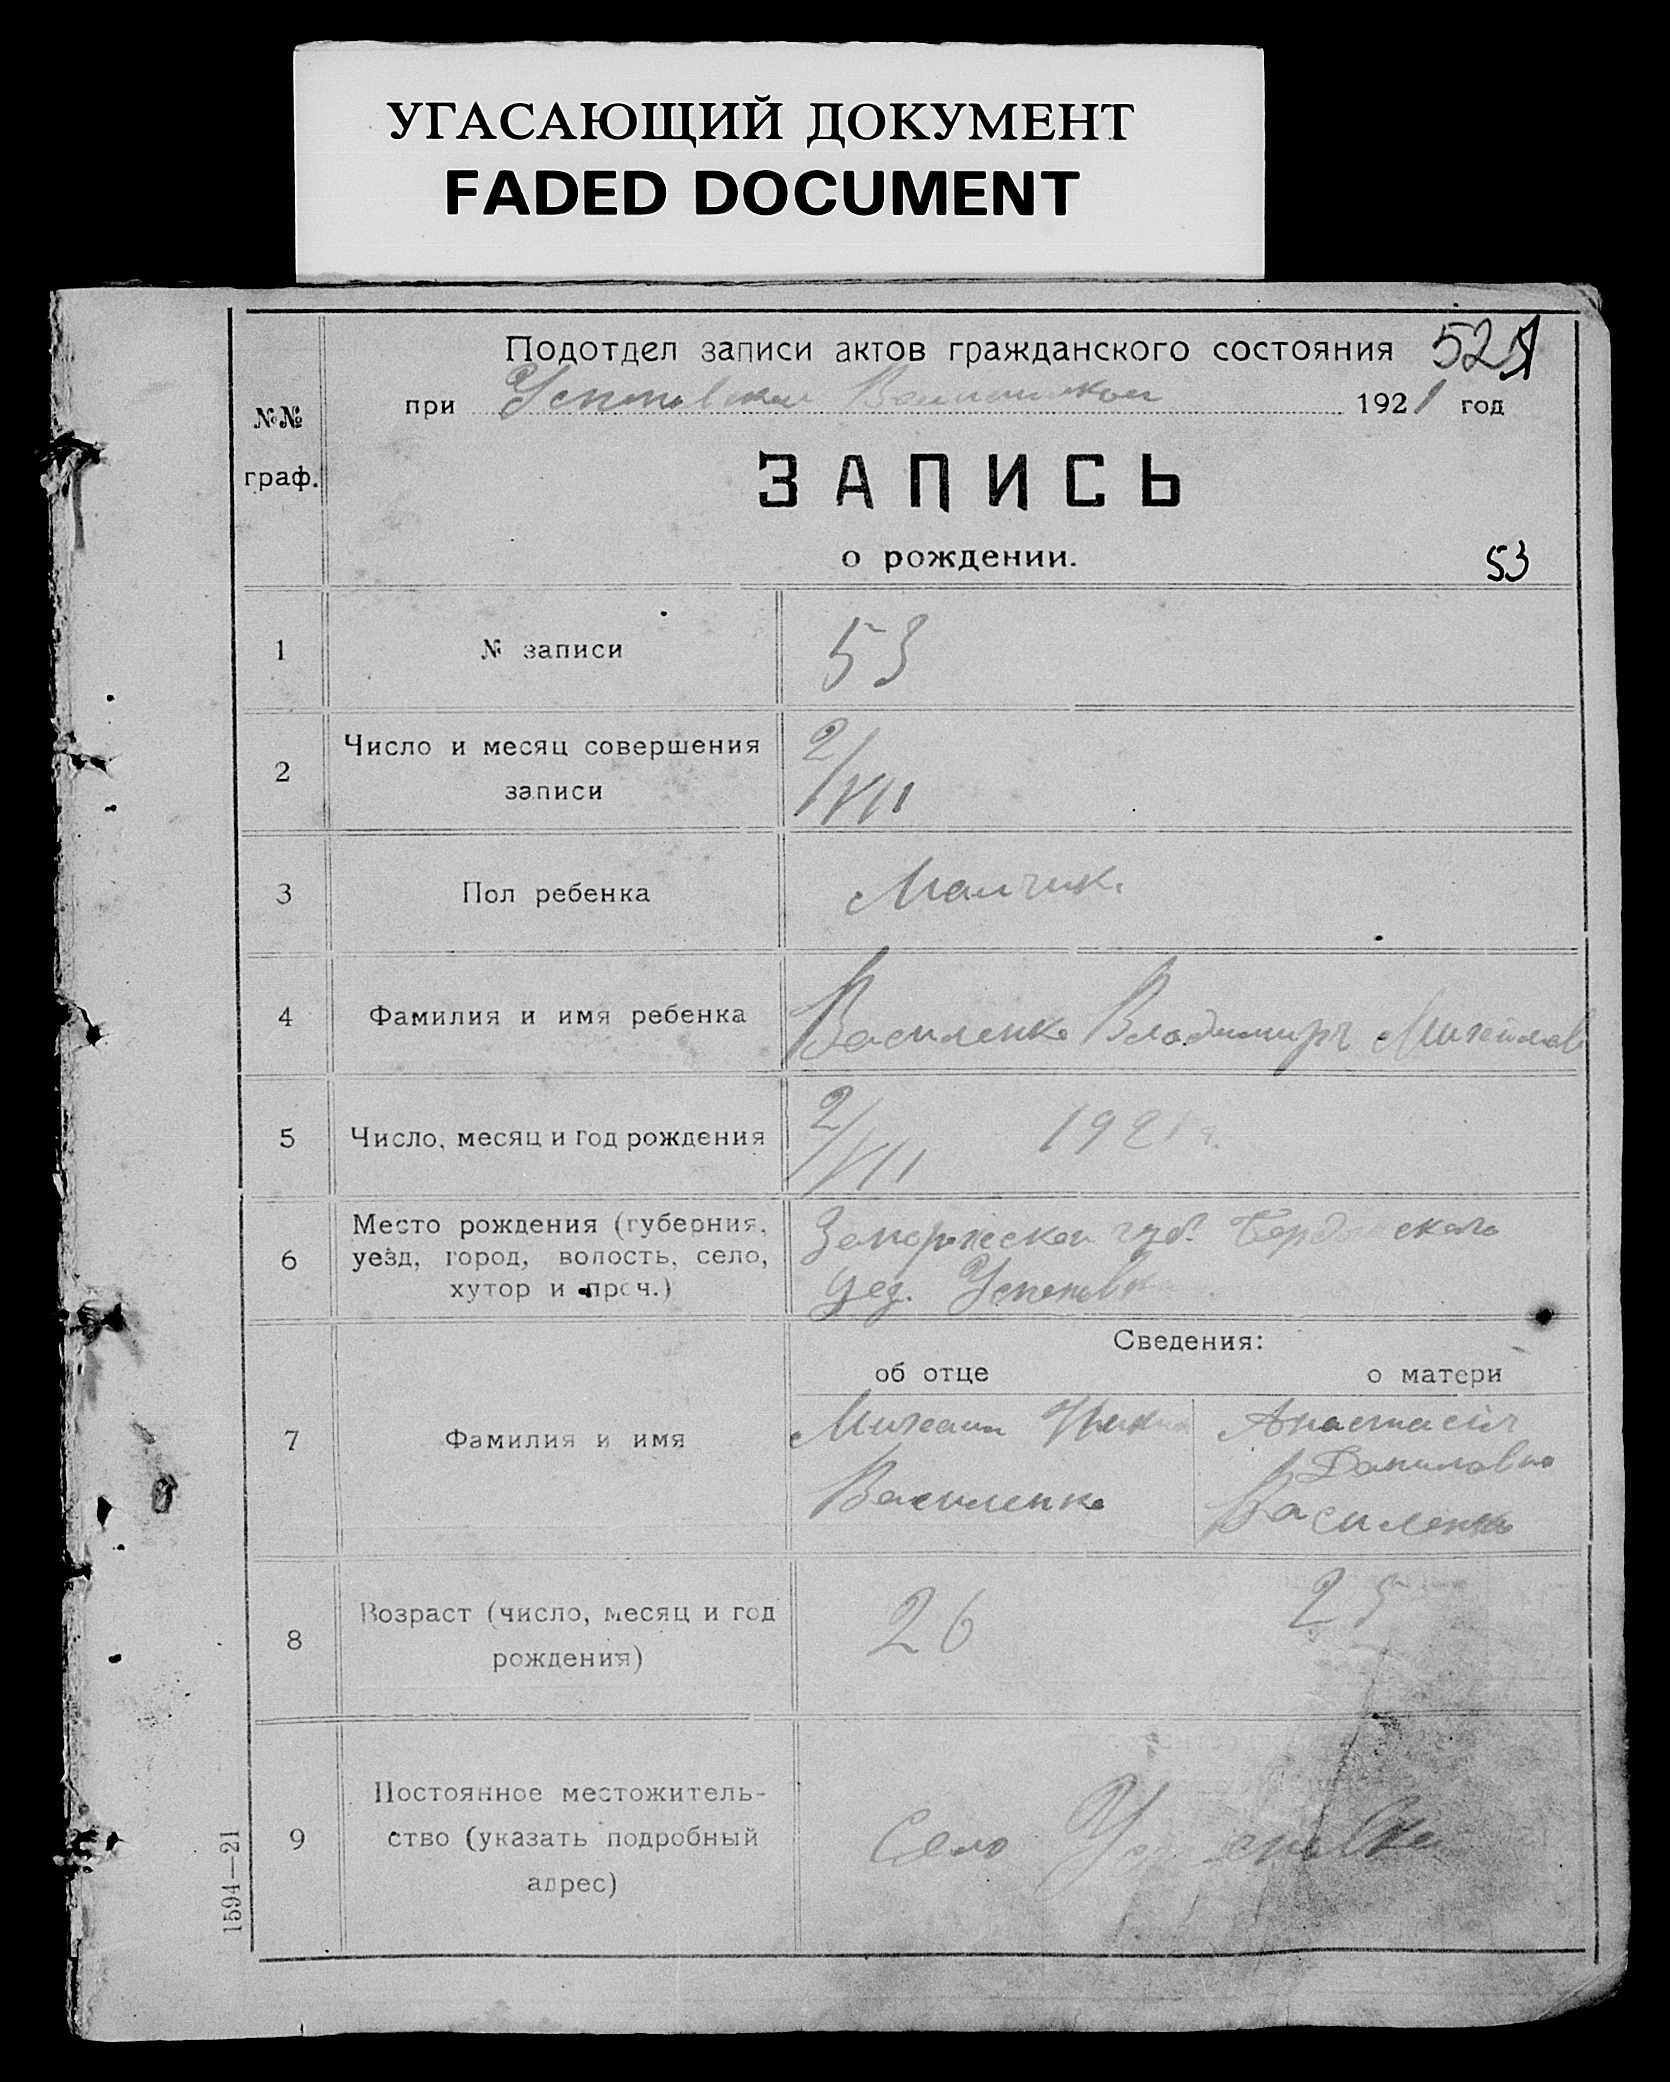 УГАСАЮЩИЙ ДОКУМЕНТ
FADED DOCUMENT
Подотдел записи актов гражданского состояния
при 1921 год
№№
граф.
ЗАПИСЬ
о рождении.
53
1 № записи 53
2 Число и месяц совершения
записи 2/VII
3 Пол ребенка Малчик.
4 Фамилия и имя ребенка Василенко Владимиръ Михайлов
5 Число, месяц и год рождения 2/VII 1921 г.
6 Место рождения (губерния, Запорожской губ. Бердянского
уезд, город, волость, село, уез. Успеновка
хутор и проч.)
Сведения:
об отце о матери
7 Фамилия и имя Михаил Анастасія
Даниловна
Василенко Василенко
8 Возраст (число, месяц и год 26 25
рождения)
9 Постоянное местожитель-
ство (указать подробный Село Успеновка
адрес)
1594—21